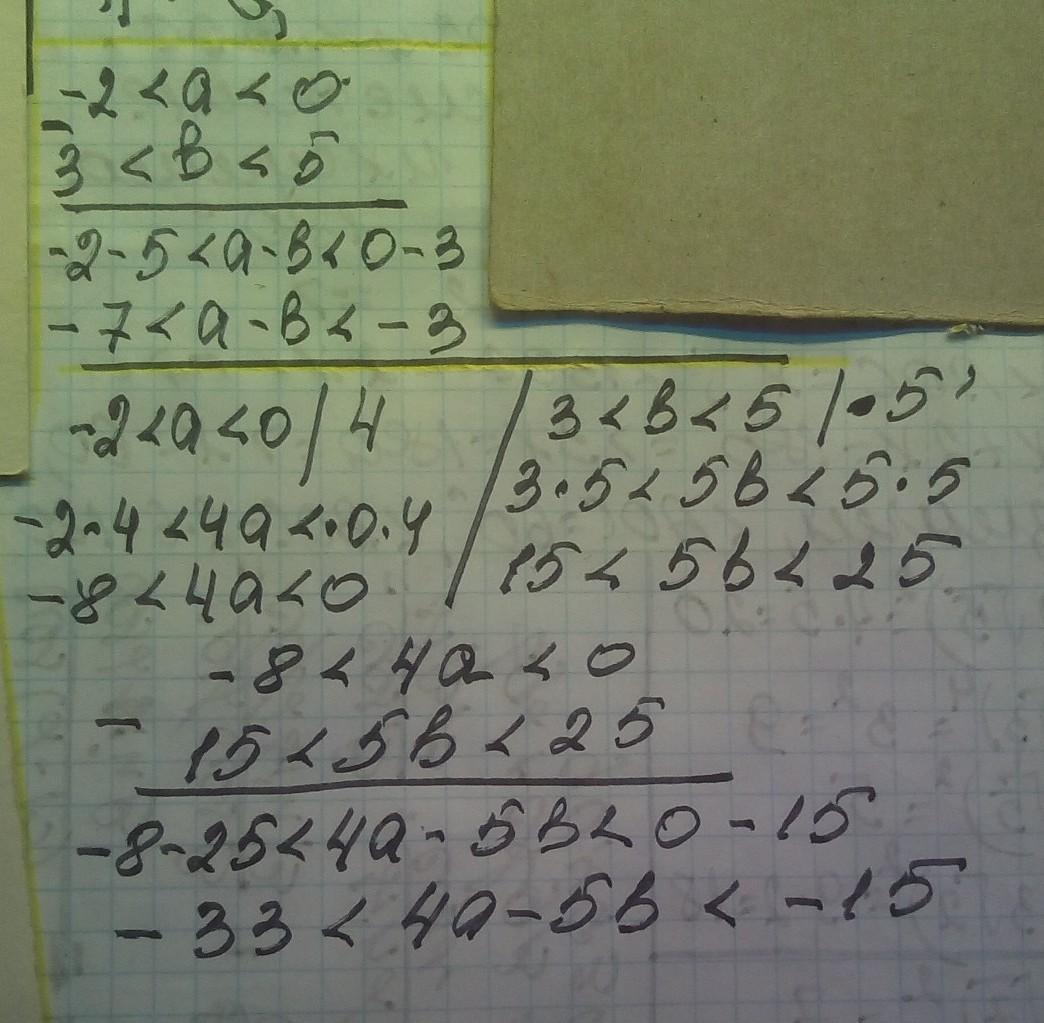 -2 < a < 0
-
3 < b < 5
-2-5 < a-b < 0-3
-7 < a-b < -3
-2 < a < 0 | 4
-2·4 < 4a < ·0·4
-8 < 4a < 0
3 < b < 5 | ·5
3·5 < 5b < 5·5
15 < 5b < 25
-8 < 4a < 0
-
15 < 5b < 25
-8-25 < 4a-5b < 0-15
-33 < 4a-5b < -15